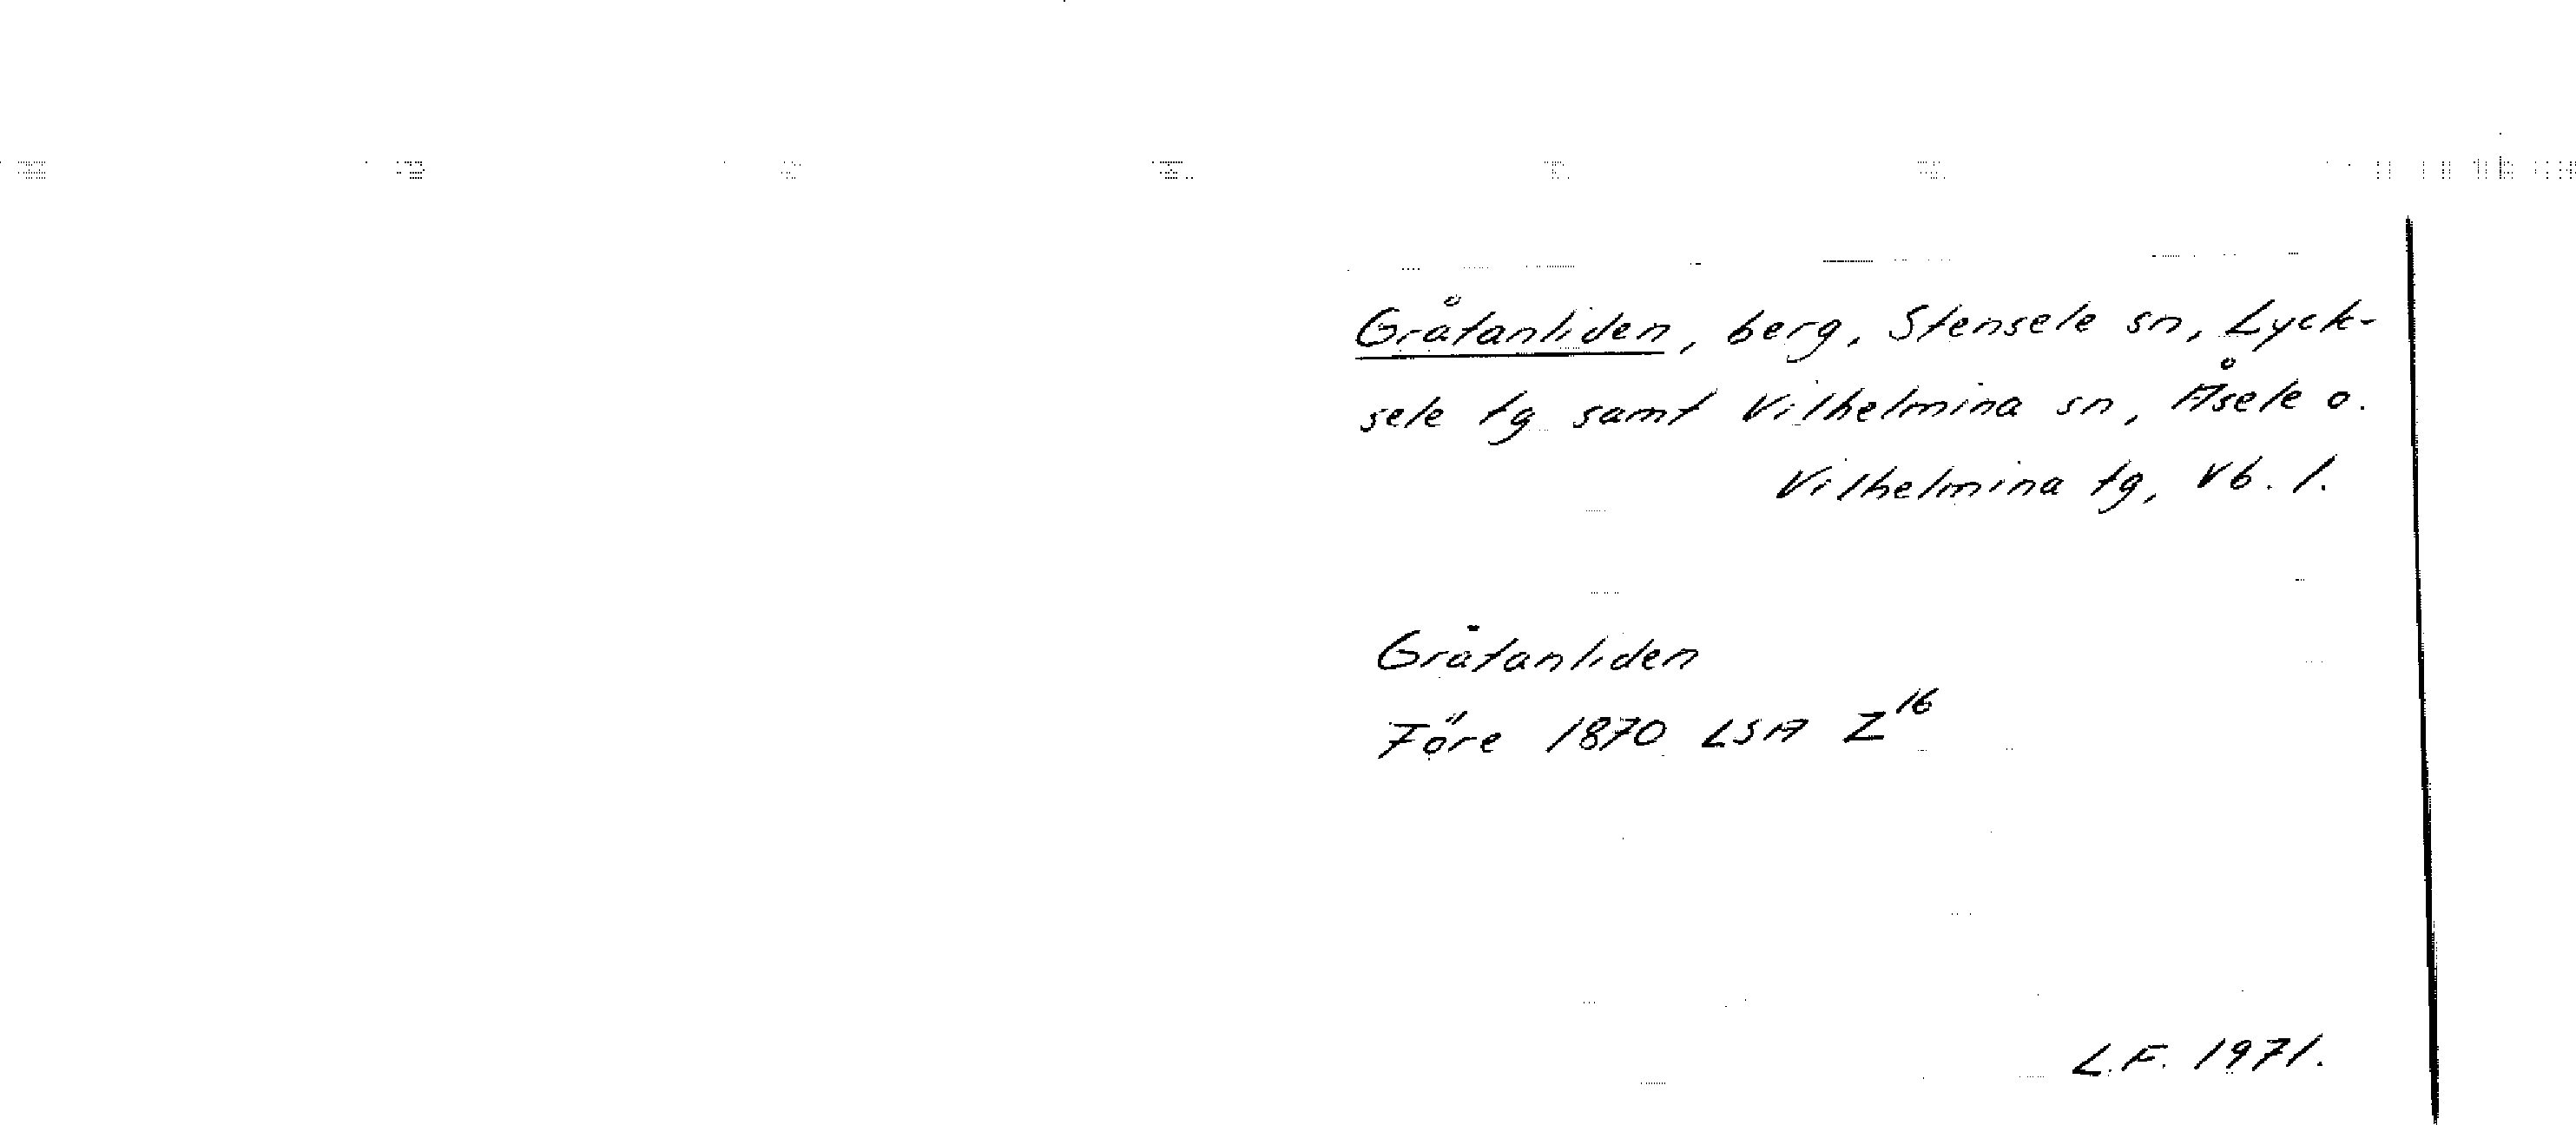 Gråtanliden, berg, Stensele sn, Lyck-
sele tg samt Vilhelmina sn, Åsele o.
Vilhelmina tg, Vb. l.
Gråtanliden
Före 1870 LSA Z16
L.F. 1971.